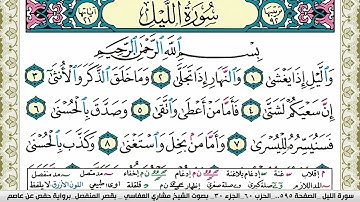 سُورَةُ اللَّيْلِ
بِسْمِ اللَّهِ الرَّحْمَٰنِ الرَّحِيمِ
وَاللَّيْلِ إِذَا يَغْشَىٰ ١ وَالنَّهَارِ إِذَا تَجَلَّىٰ ٢ وَمَا خَلَقَ الذَّكَرَ وَالْأُنثَىٰ ٣
إِنَّ سَعْيَكُمْ لَشَتَّىٰ ٤ فَأَمَّا مَنْ أَعْطَىٰ وَاتَّقَىٰ ٥ وَصَدَّقَ بِالْحُسْنَىٰ ٦
فَسَنُيَسِّرُهُ لِلْيُسْرَىٰ ٧ وَأَمَّا مَن بَخِلَ وَاسْتَغْنَىٰ ٨ وَكَذَّبَ بِالْحُسْنَىٰ
سورة الليل الصفحة ٥٩٥. الحزب ٦٠ الجزء ٣٠. بصوت الشيخ مشاري العفاسي. بقصر المنفصل برواية حفص عن عاصم